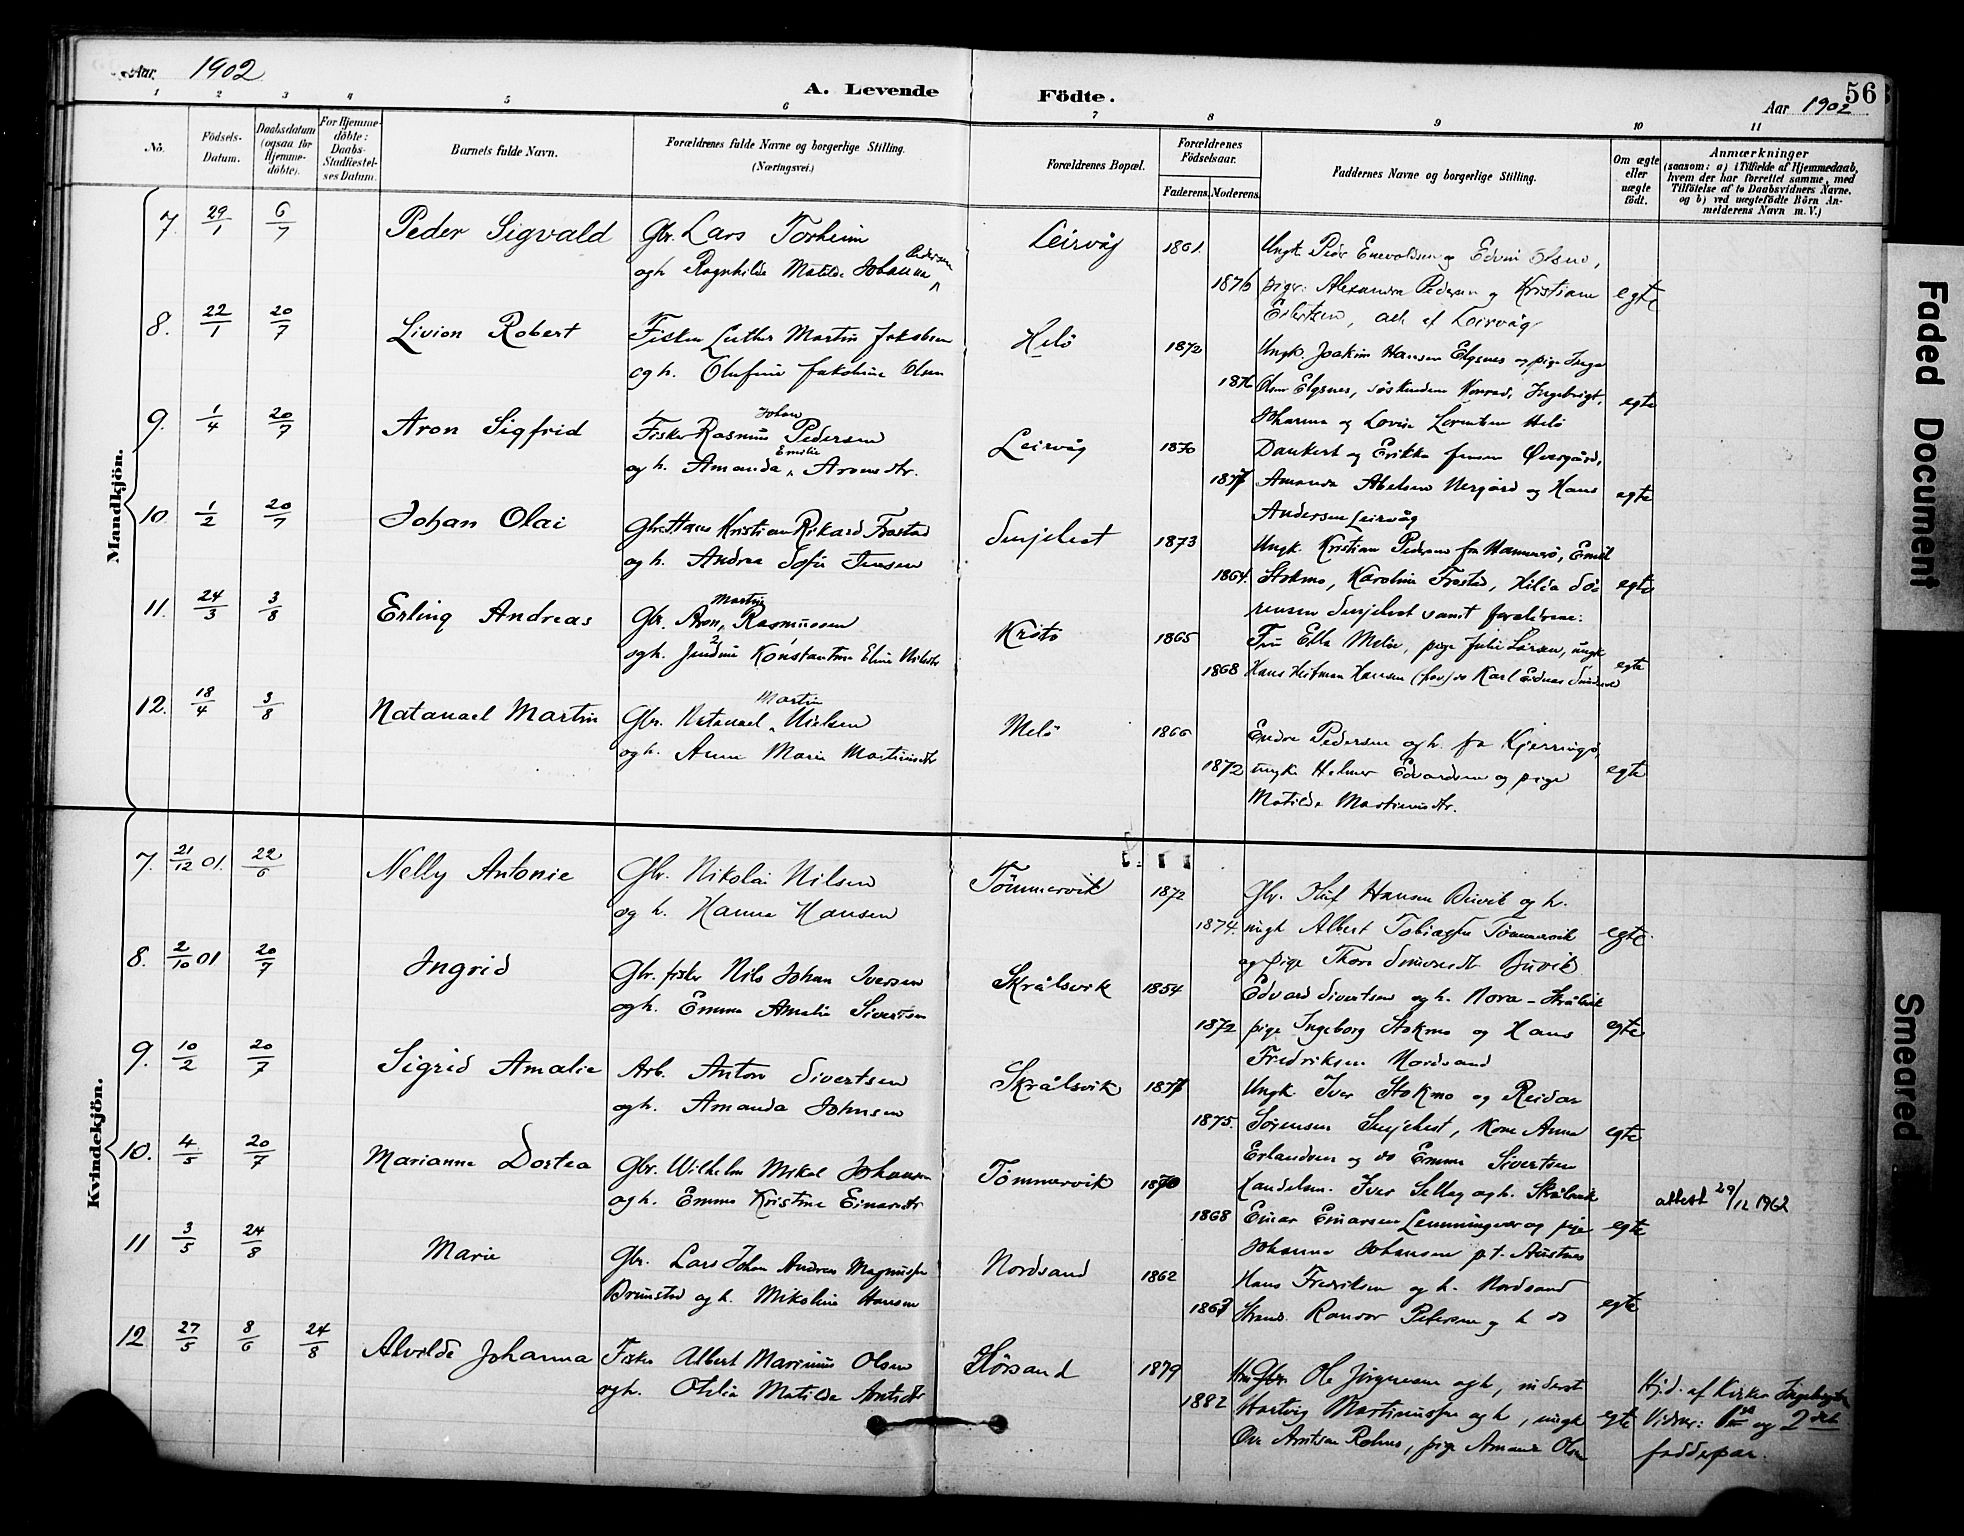 Aar 1902
A. Levende Födte.
Aar 1902
56
1 2 3 4 5 6 7 8 9 10 11
No.
Födsels-Datum.
Daabsdatum (ogsaa for Hjemme-döbte).
For Hjemme-döbte: Daabs-Stadfæstel-ses Datum.
Barnets fulde Navn.
Forældrenes fulde Navne og borgerlige Stilling. (Næringsvei.)
Forældrenes Bopæl.
Forældrenes Födselsaar.
Faderens. Moderens.
Faddernes Navne og borgerlige Stilling.
Om ægte eller uægte födt.
Anmærkninger
(saasom: a) i Tilfælde af Hjemmedaab, hvem der har forrettet samme, med Tilföielse af to Daabsvidners Navne, og b) ved uægtefödte Börn An-melderens Navn m. V.)
Mandkjön.
7. 29/1 6/7 Peder Sigvald Gbr. Lars Torheim Leirvåg 1861. Ungk. Peder Enevoldsen og Edvin Olsen,
og h. Ragnhilde Matilde Johanna Pedersen 1876 piger: Alexandra Pedersen og Kristiane egte
Eilertsen, alle af Leirvåg
8. 22/1 20/7 Livion Robert Fisker Luther Martin Jakobsen Helö 1872 Ungk. Joakim Hansen Elgsnes og pige Inga
og h. Olufine Jakobine Olsen 1876 Olsen Elgsnes, söskendene Konrad, Ingebrigt, egte
Johanna og Lovise Lorentsen Helö
9. 1/4 20/7 Aron Sigfrid Fisker Rasmus Johan Pedersen Leirvåg 1870 Dankert og Erikka Jensen Övergård,
og h. Amanda Emilie Aronsdtr. 1877 Amanda Abelsen Nergård og Hans egte
Andersen Leirvåg
10. 1/2 20/7 Johan Olai Gbr. Hans Kristian Rikard Frostad Senjehest 1873 Ungk. Kristian Pedersen fra Hammerö, Emil
og h. Andrea Sofie Jensen 1864. Stokmo, Karoline Frostad, Hilda Sö- egte
rensen Senjehest samt forældrene.
11. 24/3 3/8 Erling Andreas Gbr. Aron Martin Rasmussen Kröto 1865 Fru Ella Melöe, pige Julie Larsen, ungk
og h. Konstantine Eline Nilsdtr 1868 Hans Heitman Hansen do Karl Eidnes egte
12. 18/4 3/8 Natanael Martin Gbr. Natanael Martin Nielsen Melö 1866 Endre Pedersen og h. fra Kjerringö,
og h. Anne Marie Martinusdtr 1872 ungk. Helmer Edvardsen og pige egte
Matilde Martinusdtr.
Kvindekjön.
7. 21/12 01. 22/6 Nelly Antonie Gbr. Nikolai Nilsen Tömmervik 1872 Gbr. Oluf Hansen Buvik og h.
og h. Hanna Hansen 1874. ungk Albert Tobiassen Tömmervik egte.
og pige Thora Buvik
8. 2/10 01 20/7 Ingrid Gbr. fisker Nils Johan Iversen Skrålsvik 1854 Edvard Sivertsen og h. Nora - Skrålsvik
og h. Emma Amalie Sivertsen 1872 pige Ingeborg Stokmo og Hans egte
Fredriksen Nordsand
9. 10/2 20/7 Sigrid Amalie Arb. Anton Sivertsen Skrålsvik 1877 Ungk. Iver Stokmo og Reidar
og h. Amanda Johnsen 1875. Sörensen Senjehest, Kone Anna egte
Erlandsen og do Emma Sivertsen
10. 4/5 20/7 Marianne Dortea Gbr. Wilhelm Mikal Johansen Tömmervik 1870 Handelsm. Iver Selleg og h. Skrålsvik
og h. Emma Kristine Einarsdtr 1868 Einar Einarsen Lemmingvær og pige egte attest 29/12 1962
Johanna Johansen p.t. Austnes
11 3/5 24/8 Marie Gbr. Lars Johan Andreas Magnussen Nordsand 1862 Hans Fredriksen og h. Nordsand
Brunstad og h. Mikoline Hansen 1863 Strands. Randor Petersen og h do egte
12 27/5 8/6 24/8 Alvilde Johanna Fisker Albert Marinius Olsen Flörsand 1879 Gbr. Ole Jörgensen og h, inderst
og h. Otelia Matilde Arntsdtr 1882 Hartvig Martinussen og h, ungk egte
Ove Arntsen Rolnes, pige Amanda Olsen
Hjd. af Kirkes.
Vidner: 1ste og 2det
fadderpar.
Faded Document
Smeared